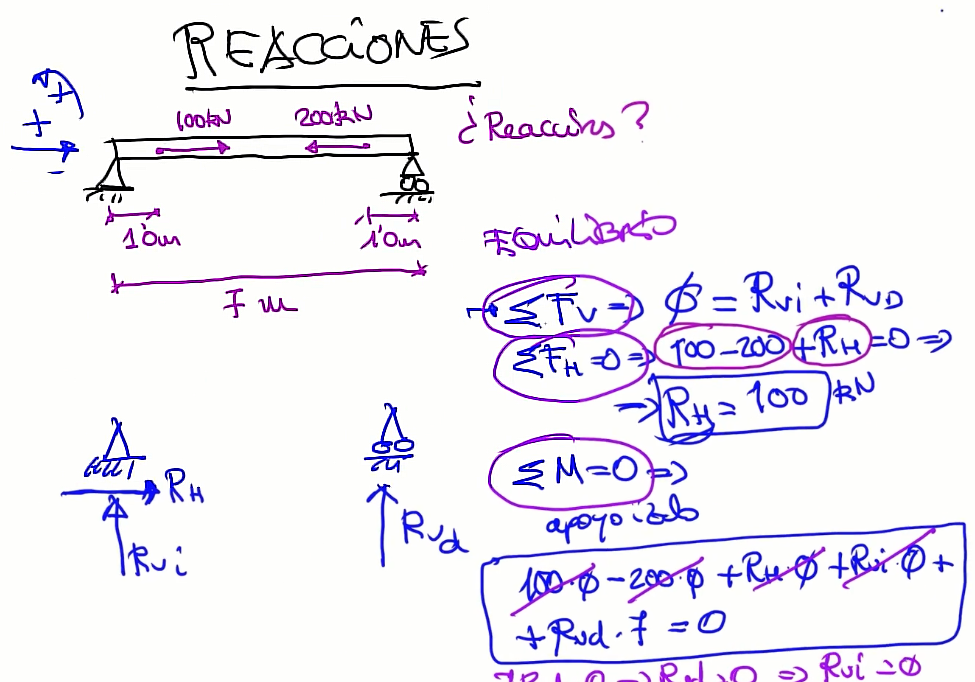 REACCIONES
+
+
-
100kN 200kN
¿Reaccins?
1'0m 1'0m
7 m
EQUILIBRIO
ΣFv => ϕ = Rvi + RvD
ΣFH = 0 => 100 - 200 + RH = 0 =>
-> RH = 100 kN
RH
Rvi
Rvd
ΣM = 0 =>
apoyo izdo
100·ϕ - 200·ϕ + RH·ϕ + Rvi·ϕ +
+ Rvd · 7 = 0
=> Rvi = ϕ